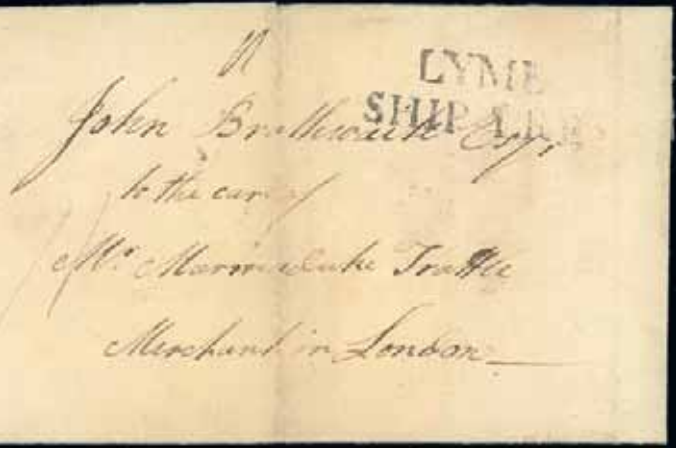 LYME
SHIP LRE
John Brathwaite Esqr
to the care of
Mr. Marmaduke Trattle
Merchant in London